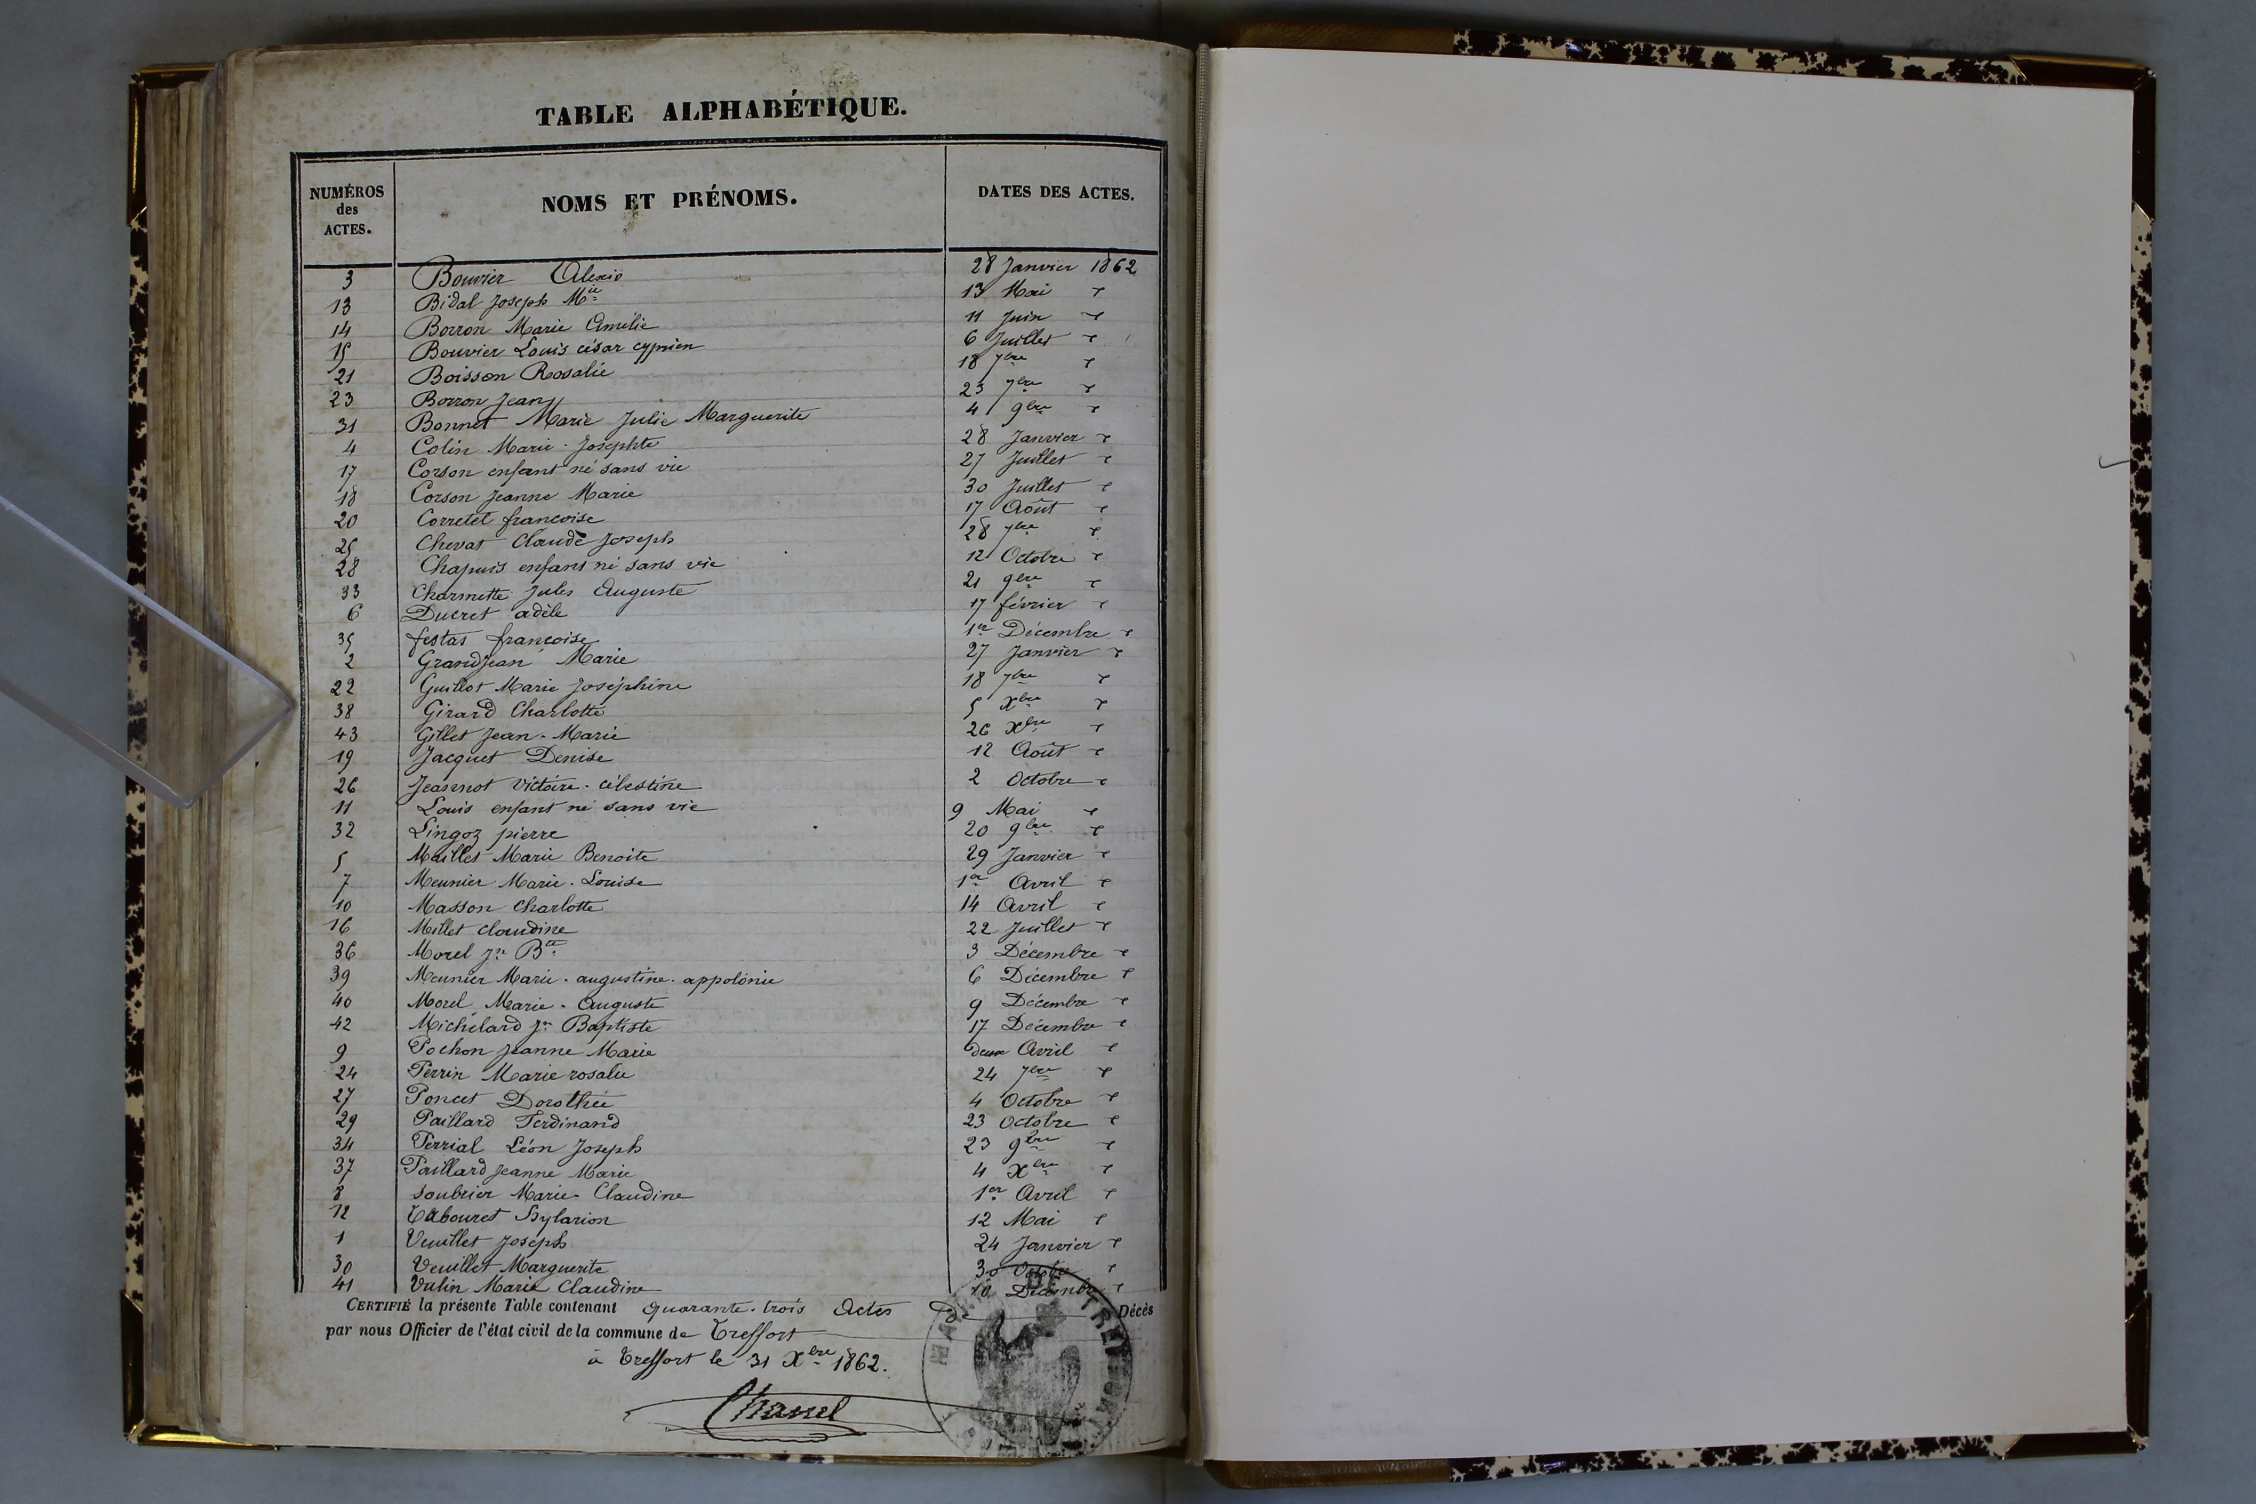 TABLE ALPHABÉTIQUE.
NUMÉROS des ACTES. NOMS ET PRÉNOMS. DATES DES ACTES.
3 Bouvier Alexis 28 Janvier 1862
13 Bidal Joseph Mie 13 Mai "
14 Borron Marie Amélie 11 Juin "
15 Bouvier Louis césar cyprien 6 Juillet "
21 Boisson Rosalie 18 7bre "
23 Borron Jean 23 7bre "
31 Bonnet Marie Julie Marguerite 4 9bre "
4 Colin Marie-Josephte 28 Janvier "
17 Corson enfant né sans vie 27 Juillet "
18 Corson Jeanne Marie 30 Juillet "
20 Corretel françoise 17 Août "
25 Chevat Claude Joseph 28 7bre "
28 Chapuis enfant né sans vie 12 Octobre "
33 Charmette Jules Auguste 21 9bre "
6 Ducret adèle 17 février "
35 festas françoise 1er Décembre "
2 Grandjean Marie 27 Janvier "
22 Guillot Marie Joséphine 18 7bre "
38 Girard Charlotte 5 Xbre "
43 Gillet Jean-Marie 26 Xbre "
19 Jacquet Denise 12 Août "
26 Jeannot Victoire-célestine 2 Octobre "
11 Louis enfant né sans vie 9 Mai "
32 Lingoz pierre 20 9bre "
5 Maillet Marie Benoite 29 Janvier "
7 Meunier Marie-Louise 1er Avril "
10 Masson Charlotte 14 Avril "
16 Millet claudine 22 Juillet "
36 Morel Jn Bte 3 Décembre "
39 Meunier Marie-augustine-appolonie 6 Décembre "
40 Morel Marie-Auguste 9 Décembre "
42 Michelard Jn Baptiste 17 Décembre "
9 Pochon Jeanne Marie deux Avril "
24 Perrin Marie rosalie 24 7bre "
27 Poncet Dorothée 4 Octobre "
29 Paillard Ferdinand 23 Octobre "
34 Perrial Léon Joseph 23 9bre "
37 Paillard Jeanne Marie 4 Xbre "
8 soubrier Marie-Claudine 1er Avril "
12 Tabouret hylarion 12 Mai "
1 Veuillet Joseph 24 Janvier "
30 Veuillet Marguerite 30 Octobre "
41 Vulin Marie Claudine 10 Décembre "
CERTIFIÉ la présente Table contenant quarante-trois Actes de Décès
par nous Officier de l'état civil de la commune de Treffort
à Treffort le 31 Xbre 1862.
Chanel
MAIRIE DE TREFFORT